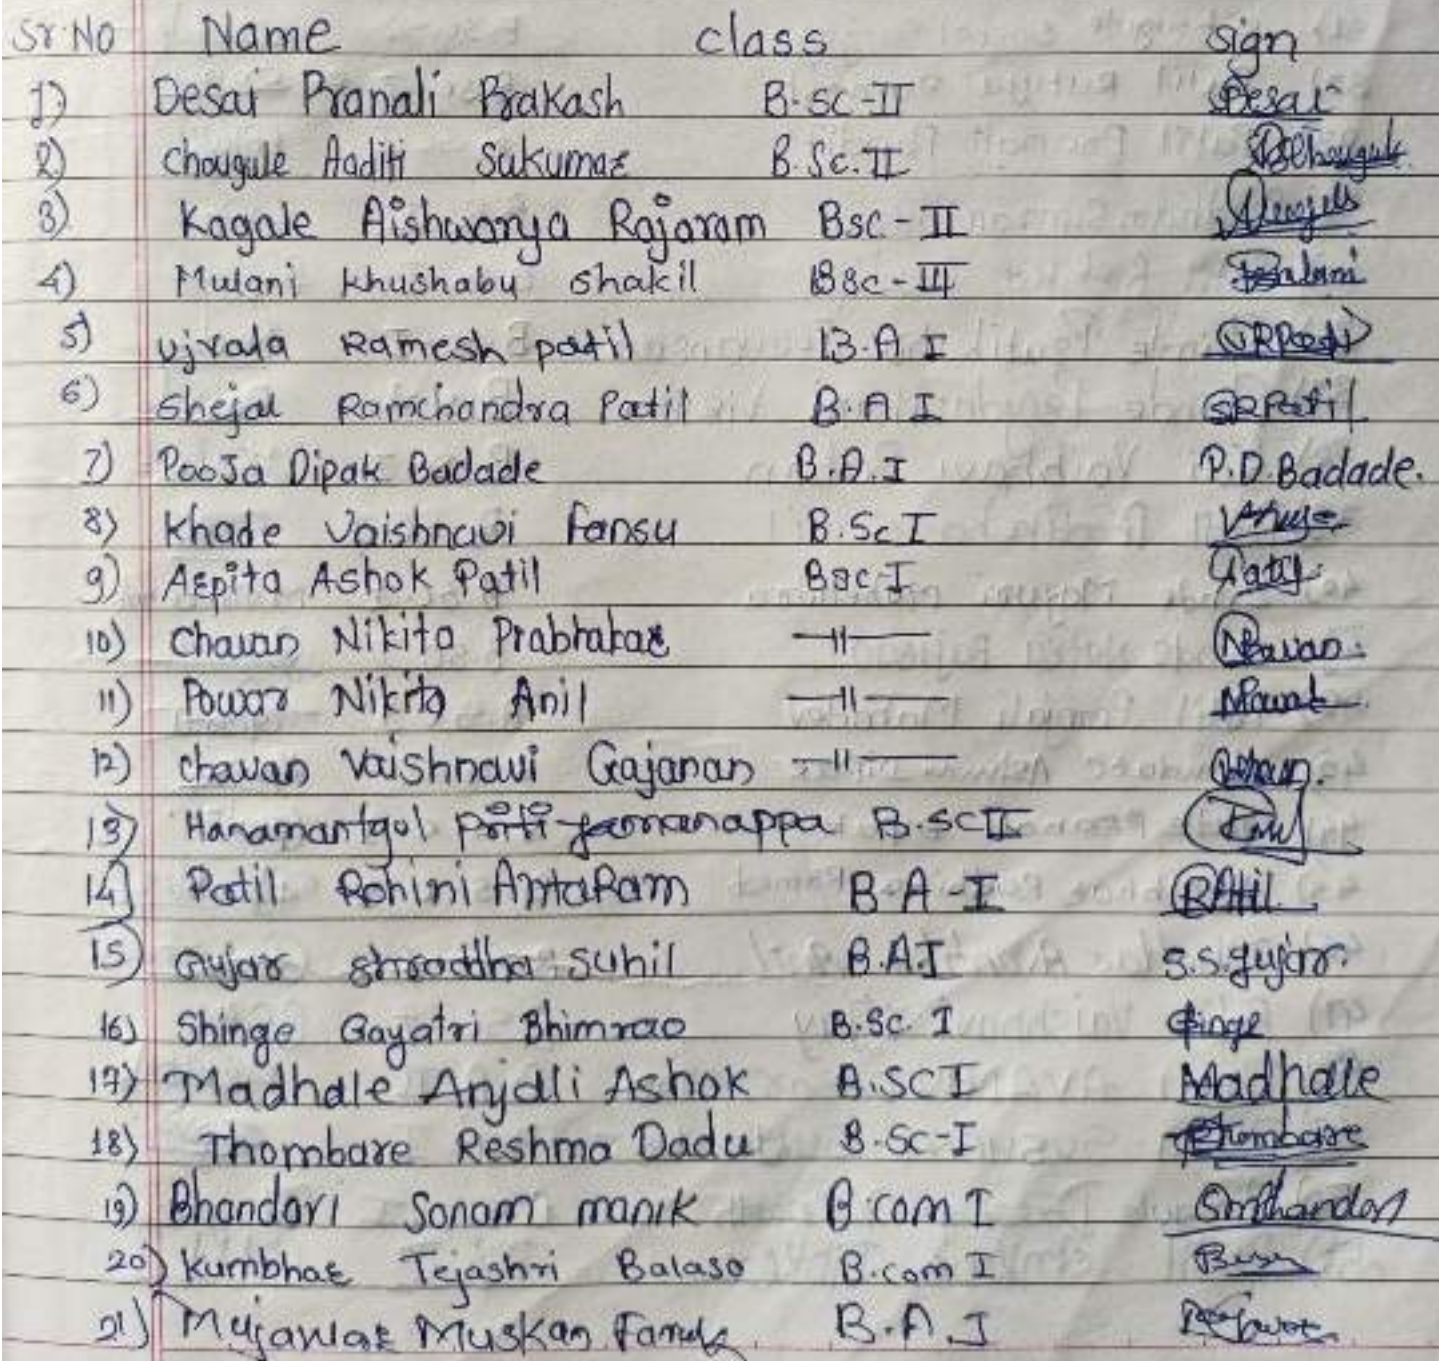 Sr No Name class sign
1) Desai Pranali Prakash B.sc-II Desai
2) Chougule Aaditi Sukumar B.Sc.II
3) Kagale Aishwarya Rajaram Bsc-II
4) Mulani Khushabu Shakil Bsc-III
5) Ujvala Ramesh patil B.A I
6) Shejal Ramchandra Patil B.A.I SRPatil
7) PooJa Dipak Badade B.A.I P.D.Badade.
8) Khade Vaishnavi B.Sc I
9) Arpita Ashok Patil Bsc-I Patil
10) Chavan Nikita Prabhakar —11—
11) Powar Nikita Anil —11—
12) Chavan Vaishnavi Gajanan —11—
13) Hanamantgol priti B.SC II
14) Patil Rohini B-A-I
15) Gujar shraddha sunil B.A.I S.S.gujar.
16) Shinge Gayatri Bhimrao B.Sc. I
17) Madhale Anjali Ashok B.SC I Madhale
18) Thombare Reshma Dadu B.Sc-I Thombare
19) Bhandari Sonam manik B.com I
20) Kumbhar Tejashri Balaso B.com I
21) Mujawar Muskan B.A.I